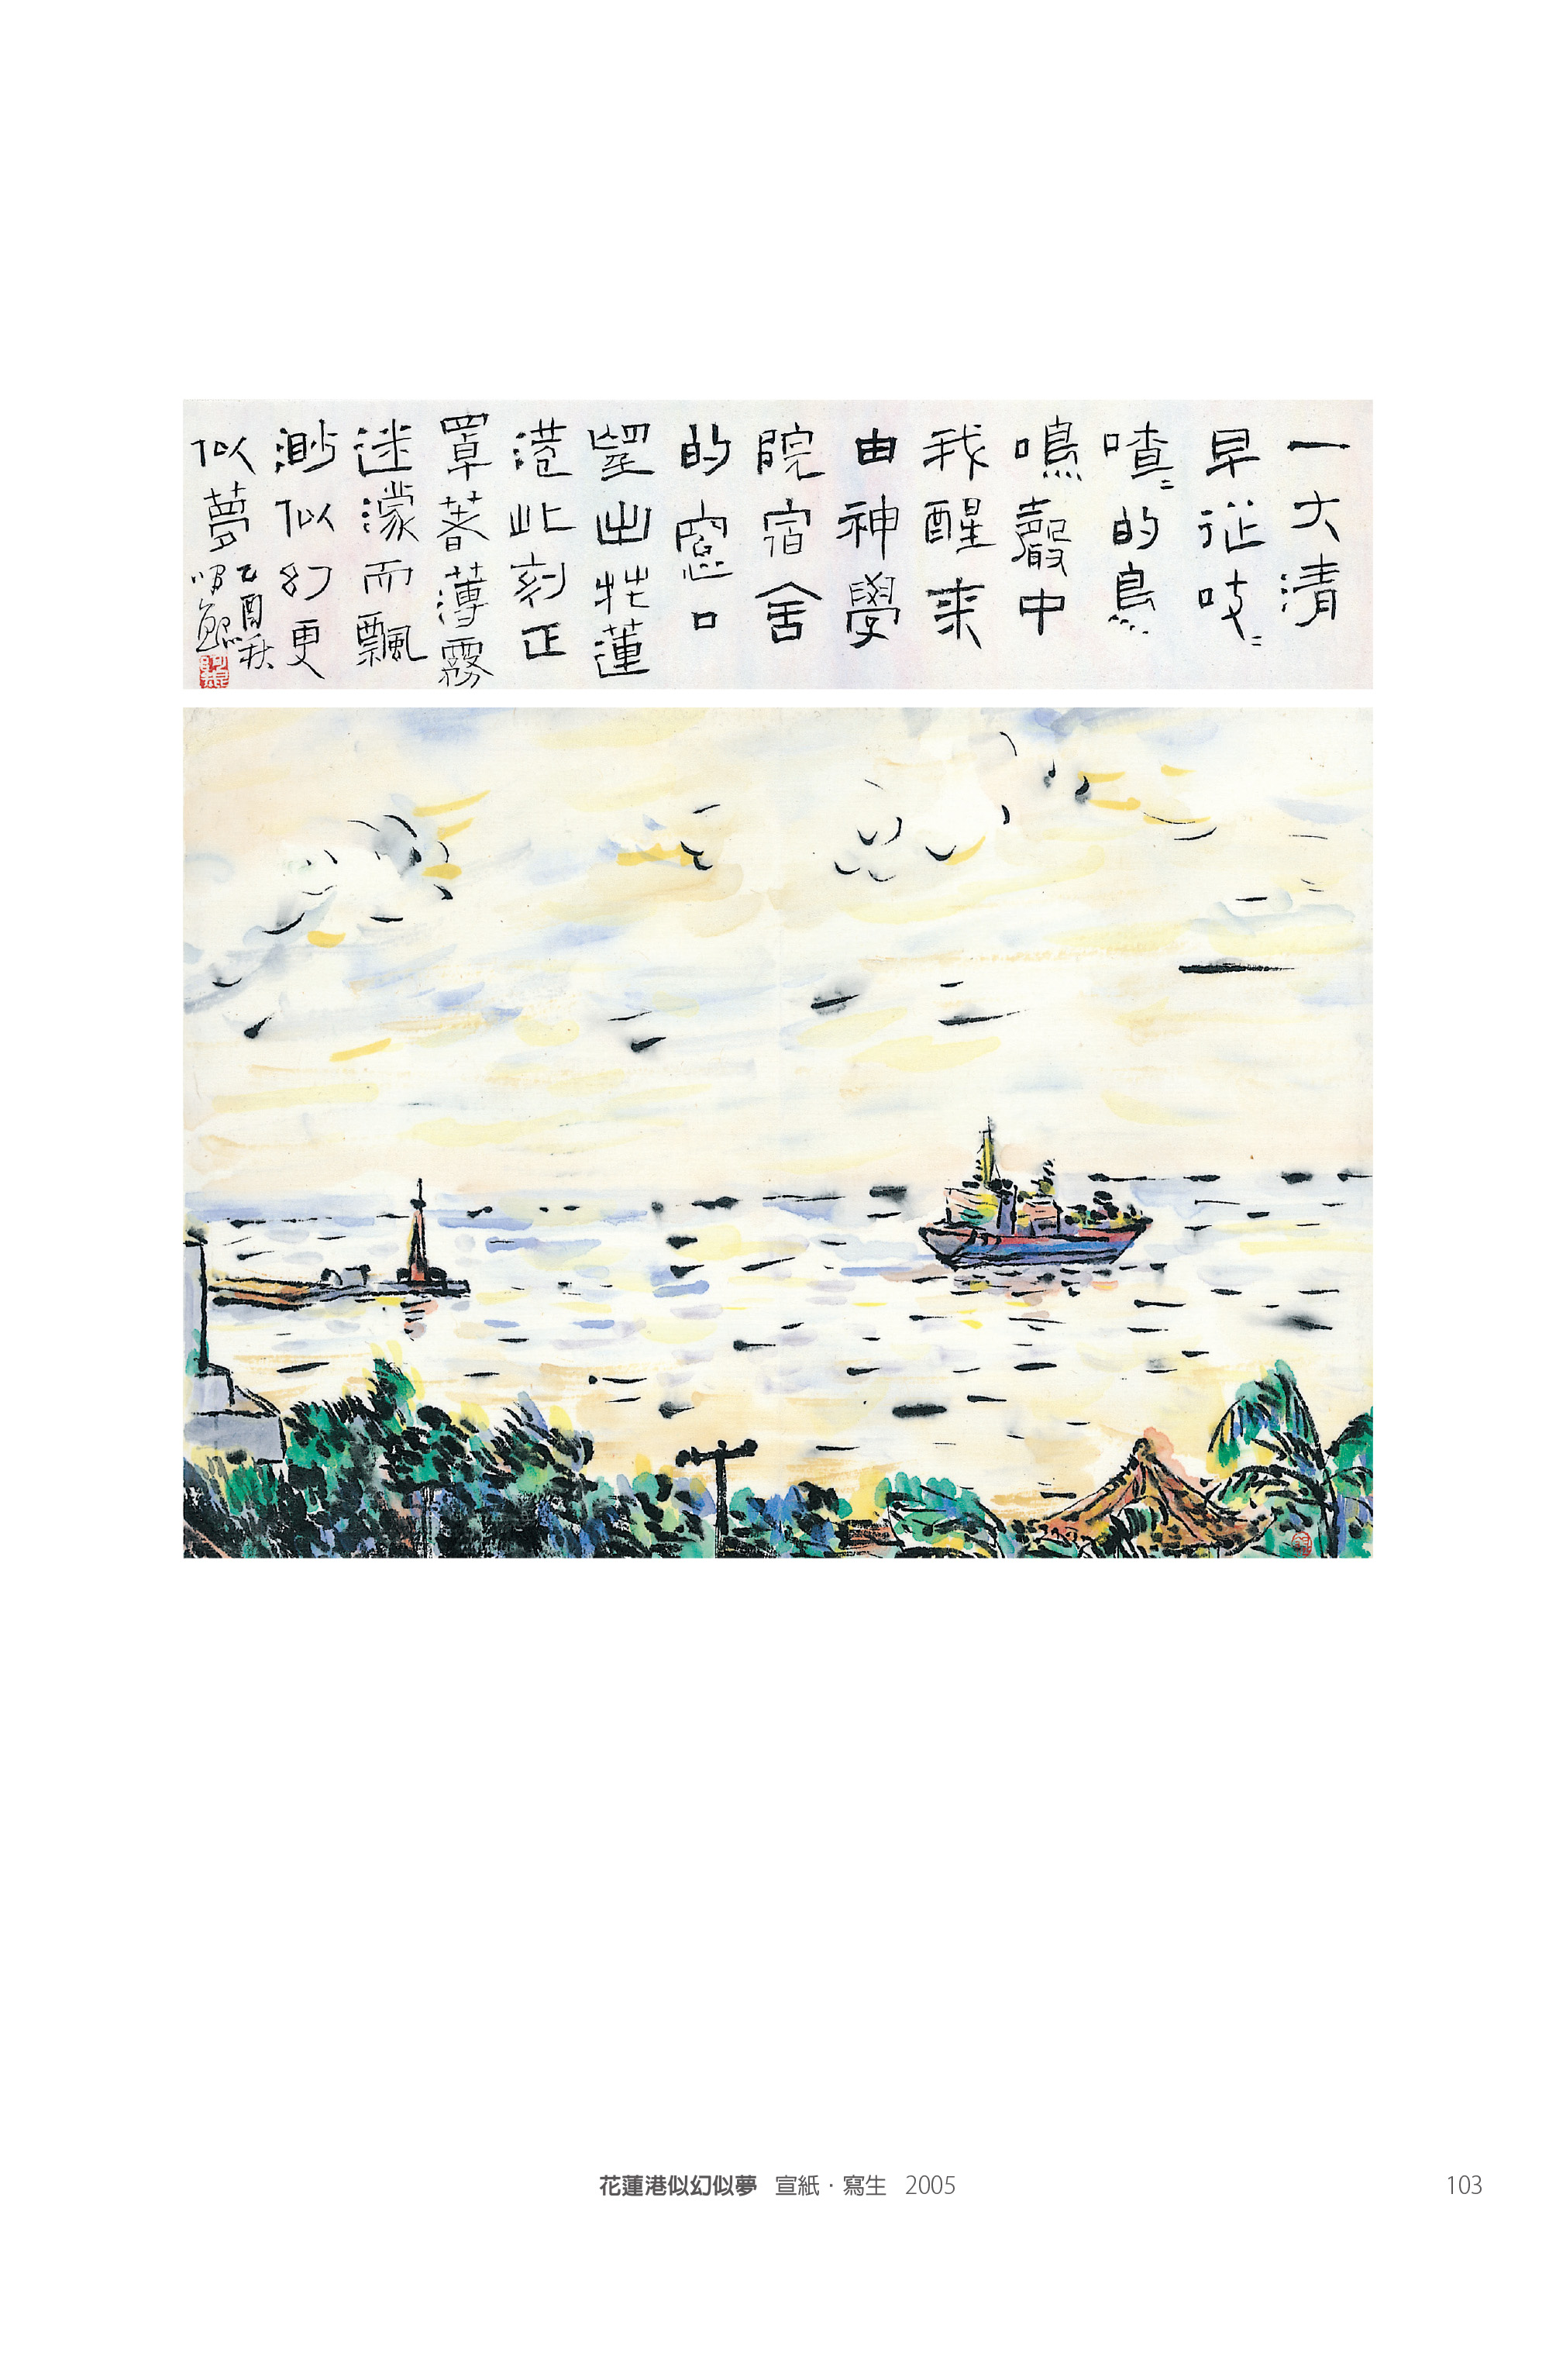 一大清
早從吱〻
喳〻的鳥
鳴聲中
我醒來
由神學
院宿舍
的窻口
望出花蓮
港此刻正
罩著薄霧
迷濛而飄
渺似幻更
似夢
乙酉秋
花蓮港似幻似夢 宣紙·寫生 2005
103